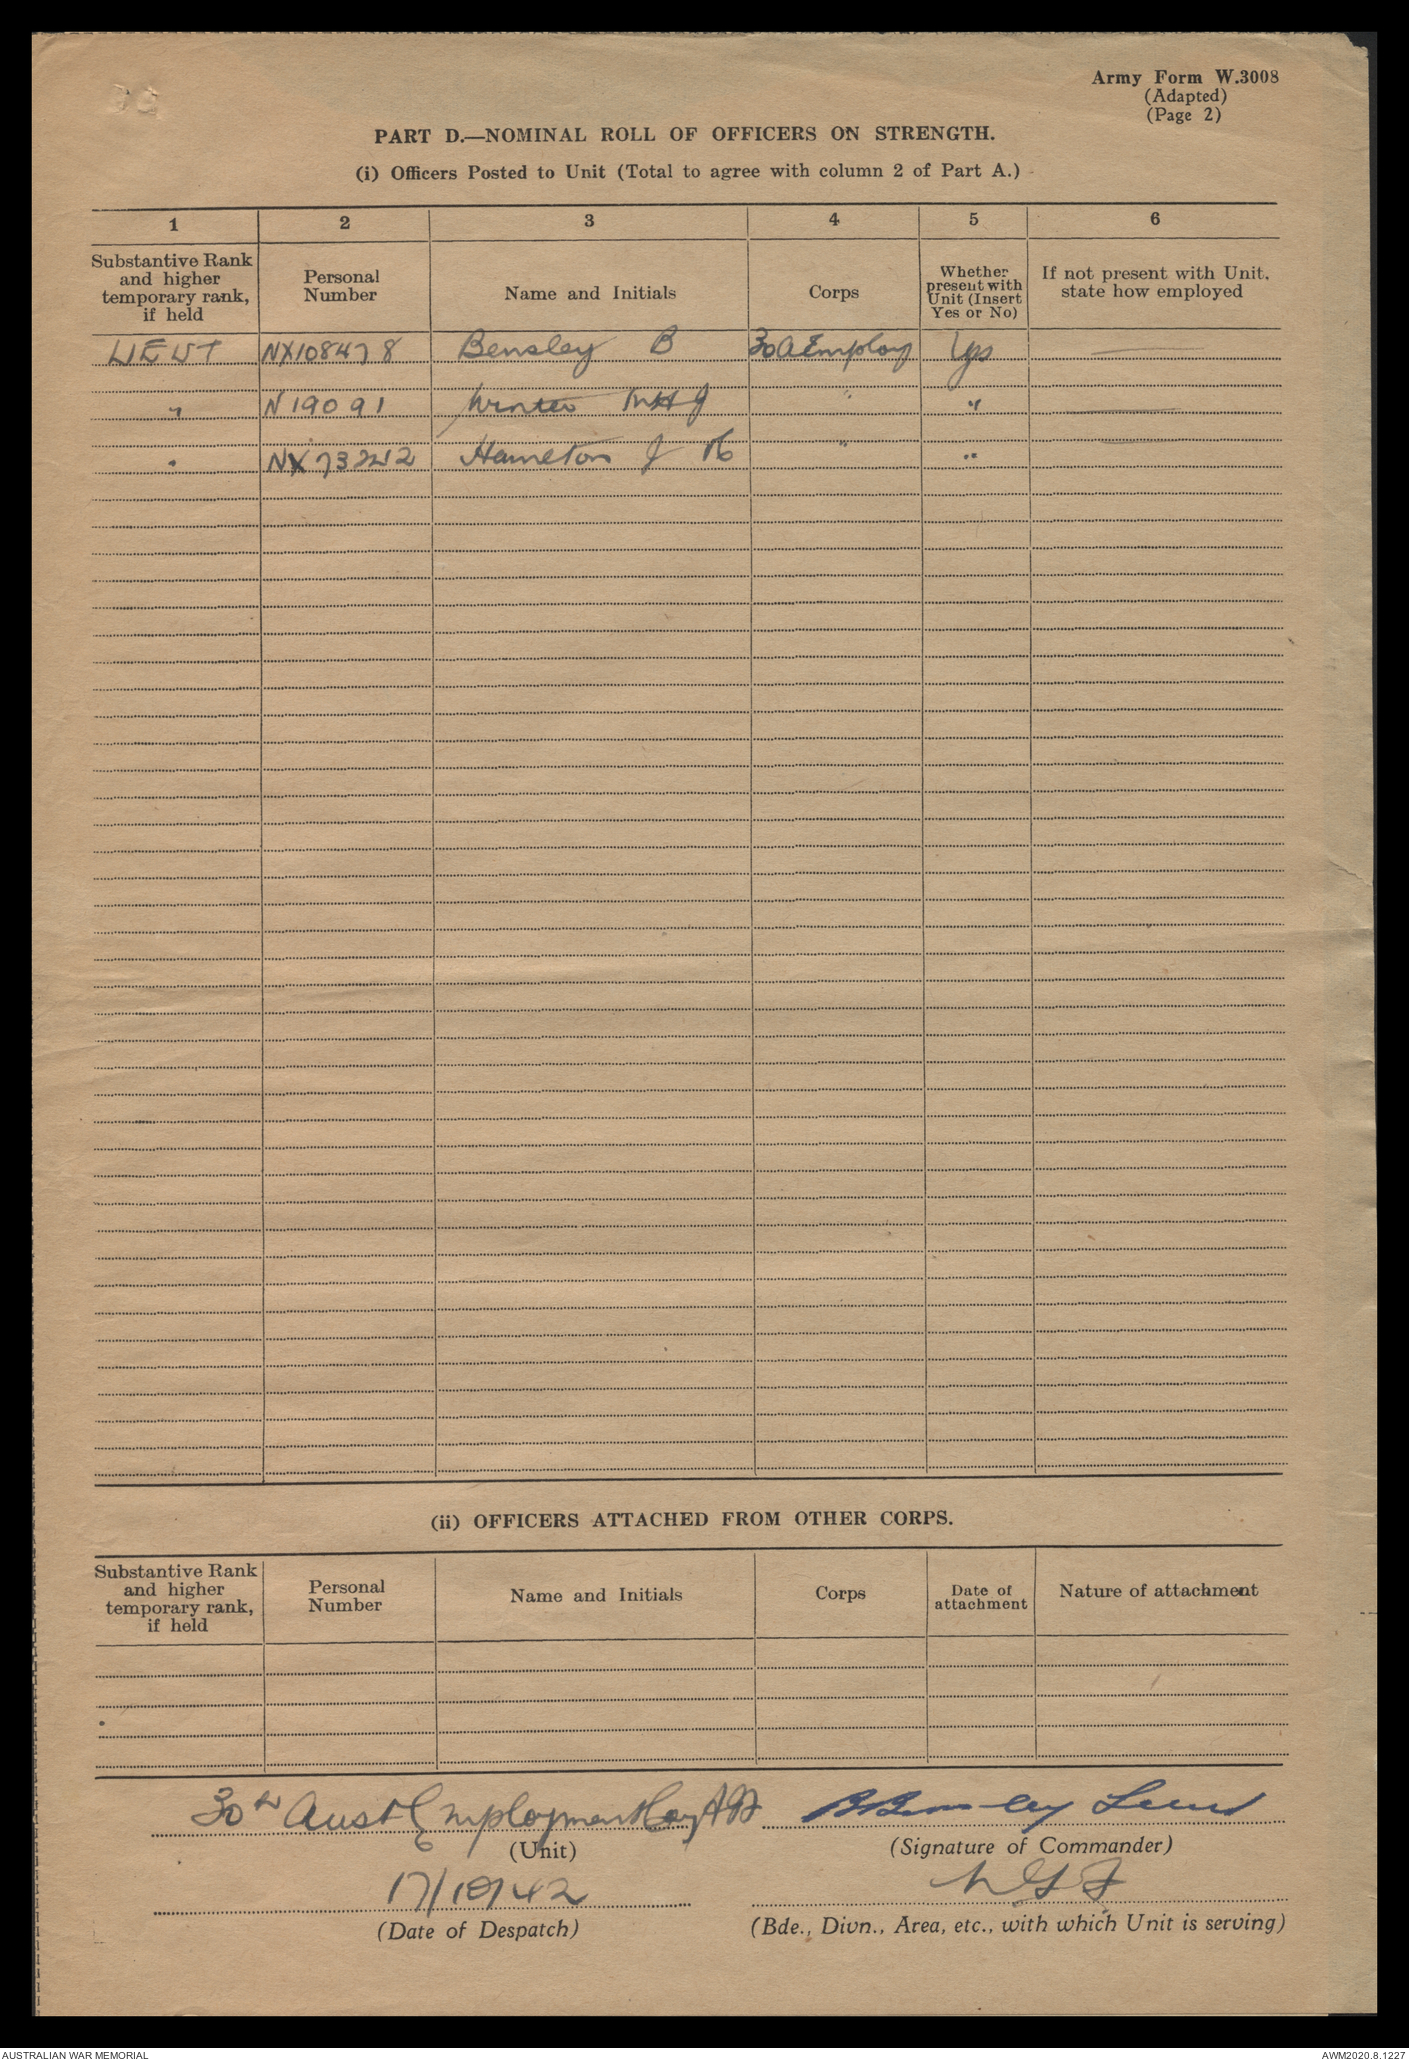 Army Form W.3008
(Adapted)
(Page 2)
PART D.—NOMINAL ROLL OF OFFICERS ON STRENGTH.
(i) Officers Posted to Unit (Total to agree with column 2 of Part A.)
1 2 3 4 5 6
Substantive Rank and higher temporary rank, if held
Personal Number
Name and Initials
Corps
Whether present with Unit (Insert Yes or No)
If not present with Unit, state how employed
LIEUT NX108478 Bensley B 30 A Employ Yes —
" N19091 Winter " " —
" NX73242 Hamilton J " " —
(ii) OFFICERS ATTACHED FROM OTHER CORPS.
Substantive Rank and higher temporary rank, if held
Personal Number
Name and Initials
Corps
Date of attachment
Nature of attachment
30th Aust Employment Coy B Bensley Lieut
(Unit) (Signature of Commander)
17/10/42 NGF
(Date of Despatch) (Bde., Divn., Area, etc., with which Unit is serving)
AUSTRALIAN WAR MEMORIAL AWM2020.8.1227